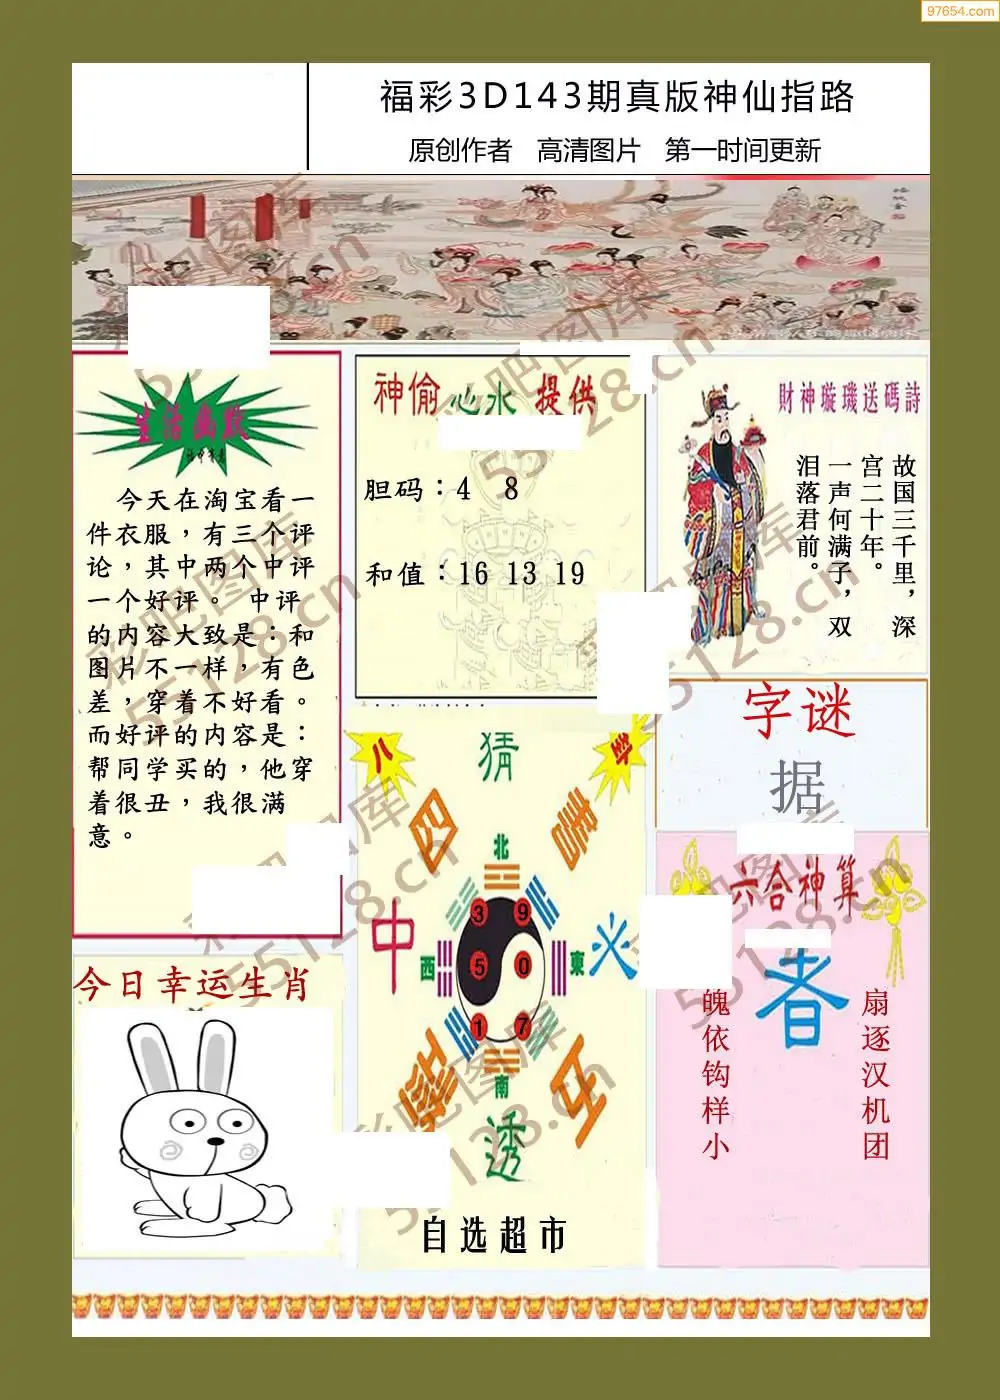 97654.com
福彩3D143期真版神仙指路
原创作者 高清图片 第一时间更新
生活幽默
今天在淘宝看一
件衣服，有三个评
论，其中两个中评
一个好评。 中评
的内容大致是：和
图片不一样，有色
差，穿着不好看。
而好评的内容是：
帮同学买的，他穿
着很丑，我很满
意。
神偷 心水 提供
胆码：4 8
和值：16 13 19
財神璇璣送碼詩
故国三千里，深
宫二十年。
一声何满子，双
泪落君前。
字谜
据
八
卦
猜
四
中
火
透
北
西
東
南
3 9
5 0
1 7
自选超市
六合神算
者
魄依钩样小
扇逐汉机团
今日幸运生肖
彩吧图库
55128.cn
彩吧图库
55128.cn
彩吧图库
55128.cn
彩吧图库
55128.cn